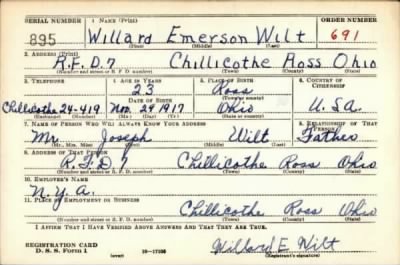 SERIAL NUMBER 1. NAME (Print) ORDER NUMBER
895 Willard Emerson Wilt 691
(First) (Middle) (Last)
2. ADDRESS (Print)
R.F.D.7 Chillicothe Ross Ohio
(Number and street or R. F. D. number) (Town) (County) (State)
3. TELEPHONE 4. AGE IN YEARS 5. PLACE OF BIRTH 6. COUNTRY OF CITIZENSHIP
23 Ross
DATE OF BIRTH (Town or county)
Chillicothe 24-419 Nov. 24 1917 Ohio U.S.A.
(Exchange) (No.) (Mo.) (Day) (Yr.) (State or country)
7. NAME OF PERSON WHO WILL ALWAYS KNOW YOUR ADDRESS 8. RELATIONSHIP OF THAT PERSON
Mr. Joseph Wilt Father
(Mr., Mrs., Miss) (First) (Middle) (Last)
9. ADDRESS OF THAT PERSON
R.F.D. 7 Chillicothe Ross Ohio
(Number and street or R. F. D. number) (Town) (County) (State)
10. EMPLOYER'S NAME
N.Y.A.
11. PLACE OF EMPLOYMENT OR BUSINESS
Chillicothe Ross Ohio
(Number and street or R. F. D. number) (Town) (County) (State)
I AFFIRM THAT I HAVE VERIFIED ABOVE ANSWERS AND THAT THEY ARE TRUE.
REGISTRATION CARD
D. S. S. Form 1 (over) Willard E. Wilt
(Registrant's signature)